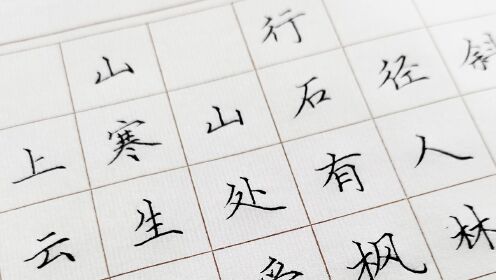 山行
上寒山石径斜
云生处有人
枫林